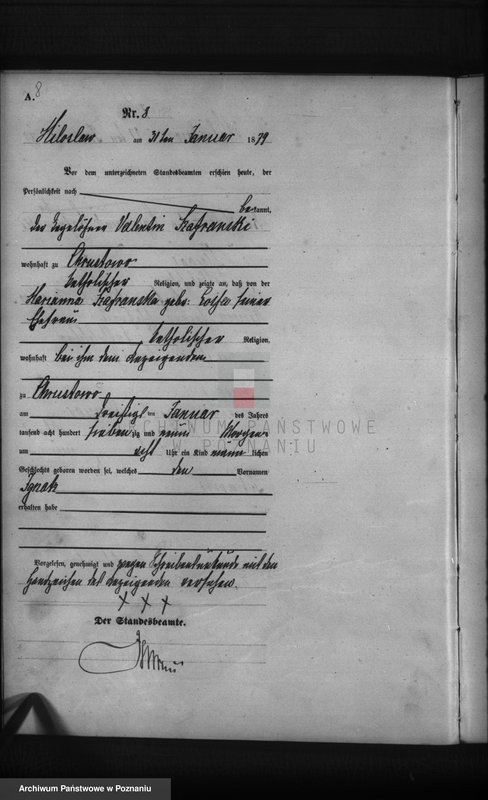 A. 8
Nr. 8
Miloslaw am 31ten Januar 1879
Vor dem unterzeichneten Standesbeamten erschien heute, der
Persönlichkeit nach
bekannt,
der Tagelöhner Valentin Szafranski
wohnhaft zu Chrustowo
katholischer Religion, und zeigte an, daß von der
Marianna Szafranska geb: seiner
Ehefrau
katholischer Religion,
wohnhaft bei ihm dem Anzeigenden
zu Chrustowo
am dreißigsten Januar des Jahres
tausend acht hundert siebenzig und neun Morgens
um acht Uhr ein Kind männlichen
Geschlechts geboren worden sei, welches den Vornamen
Ignatz
erhalten habe
Vorgelesen, genehmigt und wegen Schreibensunkunde mit den
Handzeichen des Anzeigenden versehen.
+ + +
Der Standesbeamte.
ARCHIWUM PAŃSTWOWE
W POZNANIU
Archiwum Państwowe w Poznaniu